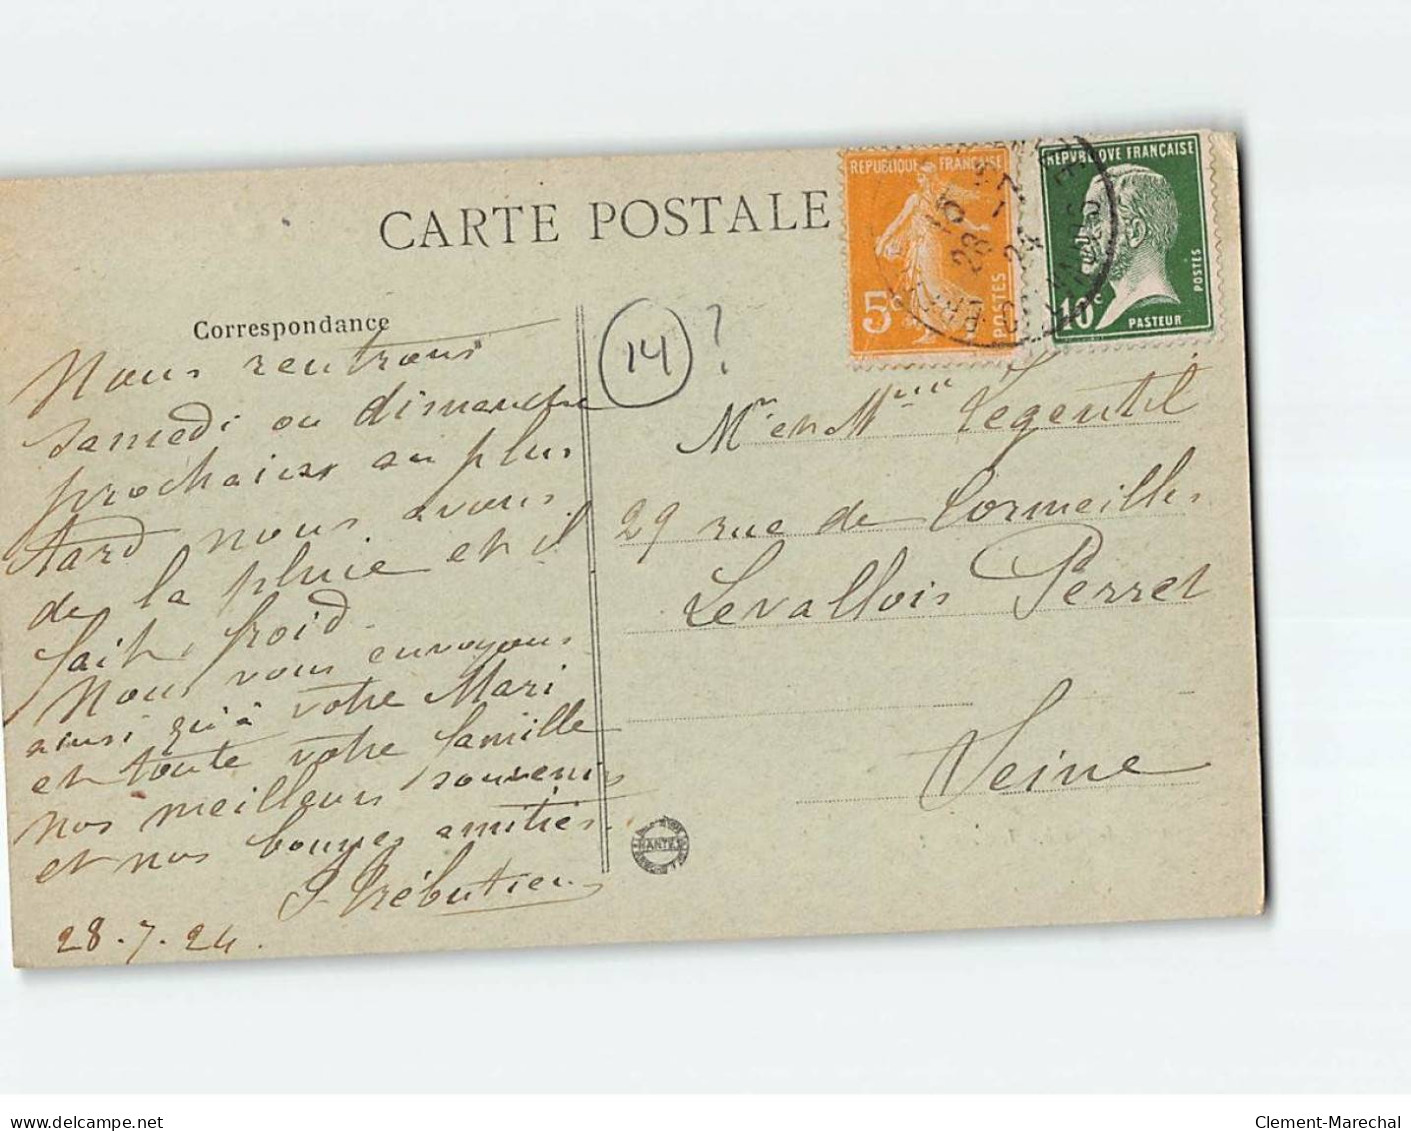 CARTE POSTALE
REPUBLIQUE FRANÇAISE
5c
POSTES
REPVBLIQVE FRANÇAISE
10c
POSTES
PASTEUR
15
28 - 7
24
CALVADOS
Correspondance
14 ?
Nous rentrons
samedi ou dimanche
prochains au plus
tard nous avons
de la pluie et il
fait froid.
Nous vous envoyons
ainsi qu'à votre Mari
et toute votre famille
nos meilleurs souvenirs
et nos bonnes amitiés.
Trébutien
28.7.24.
Mr et Mme Legentil
29 rue de Cormeilles
Levallois Perret
Seine
NANTES
delcampe.net
Clement-Marechal